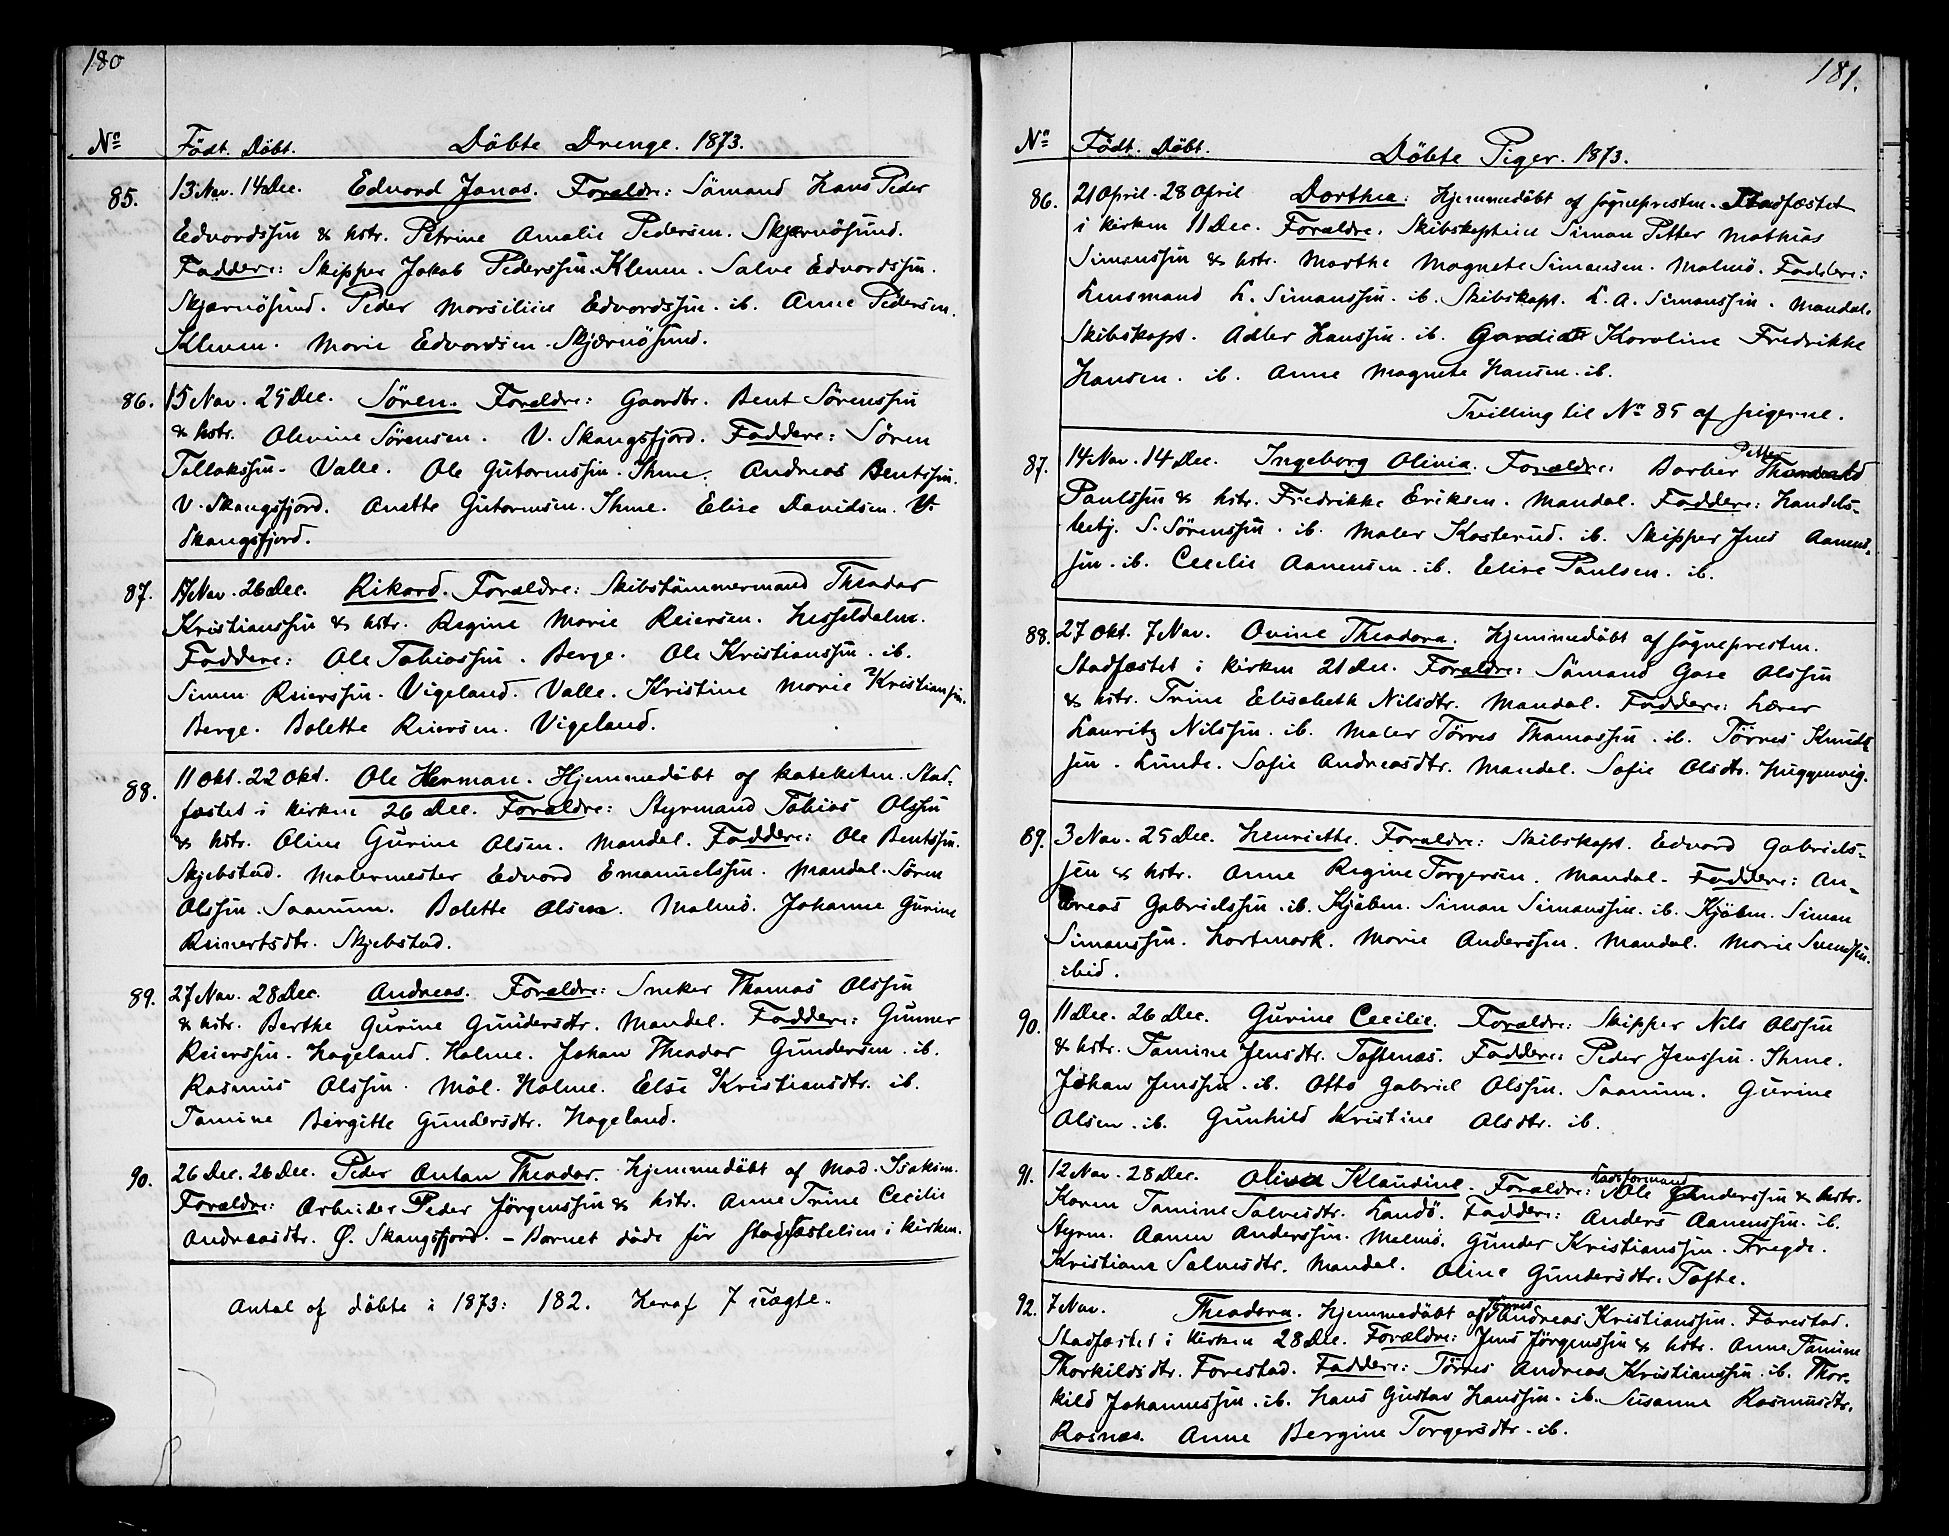 180
No Födt. Döbt. Döbte Drenge. 1873.
85. 13 Nov. 14 Dec. Edvard Jonas. Forældre: Sömand Hans Peder
Edvardssen & hstr. Petrine Amalie Pedersen. Skjernösund.
Faddere: Skipper Jakob Pederssen. Kleven. Salve Edvardssen.
Skjærnösund. Peder Marselius Edvardssen. ib. Anne Pedersen.
Kleven. Marie Edvardsen. Skjærnösund.
86. 15 Nov. 25 Dec. Sören. Forældre: Gaardbr. Bent Sörenssen
& hstr. Olevine Sörensen. V. Skangsfjord. Faddere: Sören
Tollakssen. Valle. Ole Gutormssen. Ihme. Andreas Bentssen.
V. Skangsfjord. Anette Gutormsen. Ihme. Elise Davidsen. V.
Skangsfjord.
87. 17 Nov. 26 Dec. Rikard. Forældre: Skibstömmermand Theodor
Kristianssen & hstr. Regine Marie Reiersen. Hesseldalen.
Faddere: Ole Tobiassen. Berge. Ole Kristianssen. ib.
Simen Reierssen. Vigeland. Valle. Kristine Marie Kristiansen.
Berge. Bolette Reiersen. Vigeland.
88. 11 Okt. 22 Okt. Ole Herman. Hjemmedöbt af kateketen. Stad-
fæstet i kirken 26 Dec. Forældre: Styrmand Tobias Olssen
& hstr. Oline Gurine Olsen. Mandal. Faddere: Ole Bentssen.
Skjebstad. Malermester Edvard Emanuelssen. Mandal. Sören
Olssen. Saanum. Bolette Olsen. Malmö. Johanne Gurine
Reinertsdtr. Skjebstad.
89. 27 Nov. 28 Dec. Andreas. Forældre: Sneker Thomas Olssen
& hstr. Berthe Gurine Gundersdtr. Mandal. Faddere: Gunner
Reierssen. Hageland. Holme. Johan Theodor Gundersen. ib.
Rasmus Olssen. Möl. Holme. Else Kristiansdtr. ib.
Tamine Birgitte Gundersdtr. Hageland.
90. 26 Dec. 26 Dec. Peder Anton Theodor. Hjemmedöbt af Mad. Isaksen.
Forældre: Arbeider Peder Jörgenssen & hstr. Anne Trine Cecilie
Andreasdtr. Ö. Skangsfjord. – Barnet döde för stadfæstelsen i kirken.
Antal af döbte i 1873: 182. Heraf 7 uægte.
181.
No Födt. Döbt. Döbte Piger. 1873.
86. 21 April. 28 April Dorthea: Hjemmedöbt af sognepresten. Stadfæstet
i kirken 11 Dec. Forældre. Skibskaptein Simon Petter Mathias
Simonssen & hstr. Marthe Magnete Simonsen. Malmö. Faddere:
Lensmand L. Simonssen. ib. Skibskapt. L. A. Simonssen. Mandal.
Skibskapt. Adler Hanssen. ib. Karoline Fredrikke
Hansen. ib. Anne Magnete Hansen. ib.
Tvilling til No 85 af pigerne.
87. 14 Nov. 14 Dec. Ingeborg Olivia. Forældre: Barber Petter
Paulssen & hstr. Fredrikke Eriksen. Mandal. Faddere: Handels-
betj. S. Sörenssen. ib. Maler Kosterud. ib. Skipper Jens Aanens-
sen. ib. Cecilie Aanensen. ib. Elise Paulsen. ib.
88. 27 Okt. 7 Nov. Ovine Theodora. Hjemmedöbt af sognepresten.
Stadfæstet i kirken 21 Dec. Forældre: Sömand Gose Olssen
& hstr. Trine Elisabeth Nilsdtr. Mandal. Faddere: Lærer
Lauritz Nilssen. ib. Maler Törres Thomassen. ib. Törres Knuds-
sen. Lunde. Sofie Andreasdtr. Mandal. Sofie Olsdtr. Huggenvig.
89. 3 Nov. 25 Dec. Henriette. Forældre: Skibskapt. Edvard Gabriels-
sen & hstr. Anne Regine Torgersen. Mandal. Faddere: An-
dreas Gabrielssen. ib. Kjöbm. Simon Simonssen. ib. Kjöbm. Simon
Simonssen. Hortmark. Marie Anderssen. Mandal. Marie Svendsen.
ibid.
90. 11 Dec. 26 Dec. Gurine Cecilie. Forældre: Skipper Nils Olssen
& hstr. Tamine Jensdtr. Toftenæs. Faddere: Peder Jenssen. Ihme.
Johan Jenssen. ib. Otto Gabriel Olssen. Saanum. Gurine
Olsen. ib. Gunhild Kristine Olsdtr. ib.
91. 12 Nov. 28 Dec. Oliva Klaudine. Forældre: Lodsformand Ole Gunderssen & hstr.
Karen Tamine Salvesdtr. Landö. Faddere: Anders Aanenssen. ib.
Styrm. Aanen Anderssen. Malmö. Gunder Kristianssen. Tregde.
Kristiane Salvesdtr. Mandal. Oline Gundersdtr. Tofte.
92. 7 Nov. Theodora. Hjemmedöbt af Törres Andreas Kristianssen. Farestad.
Stadfæstet i kirken 28 Dec. Forældre: Jens Jörgenssen & hstr. Anne Tamine
Thorkildsdtr. Farestad. Faddere: Törres Andreas Kristianssen. ib. Thor-
kild Johannessen. ib. Hans Gustav Hanssen. ib. Susanne Rasmusdtr.
Rosnæs. Anne Bergine Torgersdtr. ib.